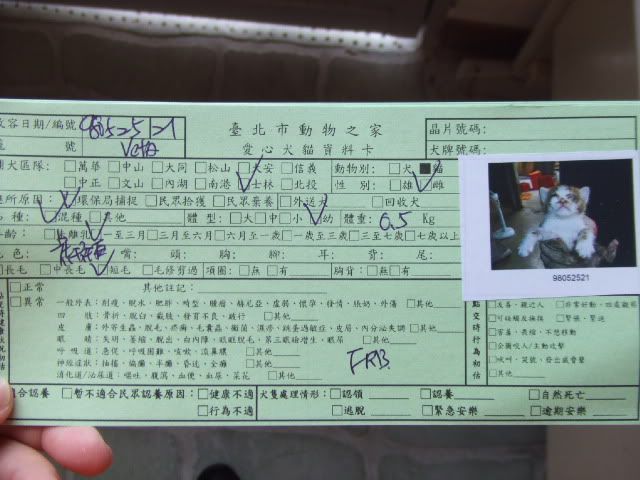 收容日期/編號 980525 21
臺北市動物之家
晶片號碼:
號
愛心犬貓資料卡
犬牌號碼:
犬區隊: □萬華 □中山 □大同 □松山 □大安 □信義 動物別: □犬 ■貓
□中正 □文山 □內湖 □南港 □士林 □北投 性 別: □雄 □雌
所原因: □環保局捕捉 □民眾拾獲 □民眾棄養 □外送犬 □回收犬
種: □混種 □其他 體 型: □大 □中 □小 □幼 體重: 0.5 Kg
年齡: □離乳 □一至三月 □三至六月 □六月至一歲 □一歲至三歲 □三至七歲 □七歲以上
毛色: 嘴: 頭: 胸: 腳: 耳: 背: 尾:
□長毛 □中長毛 □短毛 □毛修剪過 項圈: □無 □有 胸背: □無 □有
98052521
□正常 其他註記:
□異常
一般外表: 削瘦、脫水、肥胖、畸型、腫瘤、疝氣、虛弱、懷孕、發情、張奶、外傷 □其他
四 肢: 骨折、脫臼、截肢、發育不良、跛行 □其他
皮 膚: 外寄生蟲、脫毛、疥癬、毛囊蟲、黴菌、濕疹、跳蚤過敏症、皮屑、內分泌失調 □其他
眼 睛: 失明、萎縮、脫出、白內障、眼瞼脫毛、第三眼瞼增生、眼屎 □其他
呼 吸 道: 急促、呼吸困難、咳嗽、流鼻膿 □其他
神經症狀: 抽搐、偏癱、半癱、昏迷、全癱 □其他
消化道/泌尿道: 嘔吐、腹瀉、血便、血尿、菜花 □其他
FRB.
點交時行為初估
□友善、親近人 □非常好動、四處竄爬
□可碰觸及撫摸 □緊張、緊迫
□害羞、畏縮、不想移動
□企圖咬人/主動攻擊
□吠叫、哭號、發出威脅聲
□其他
合認養 □暫不適合民眾認養原因: □健康不適 犬隻處理情形: □認領 □認養 □自然死亡
□行為不適 □逃脫 □緊急安樂 □逾期安樂